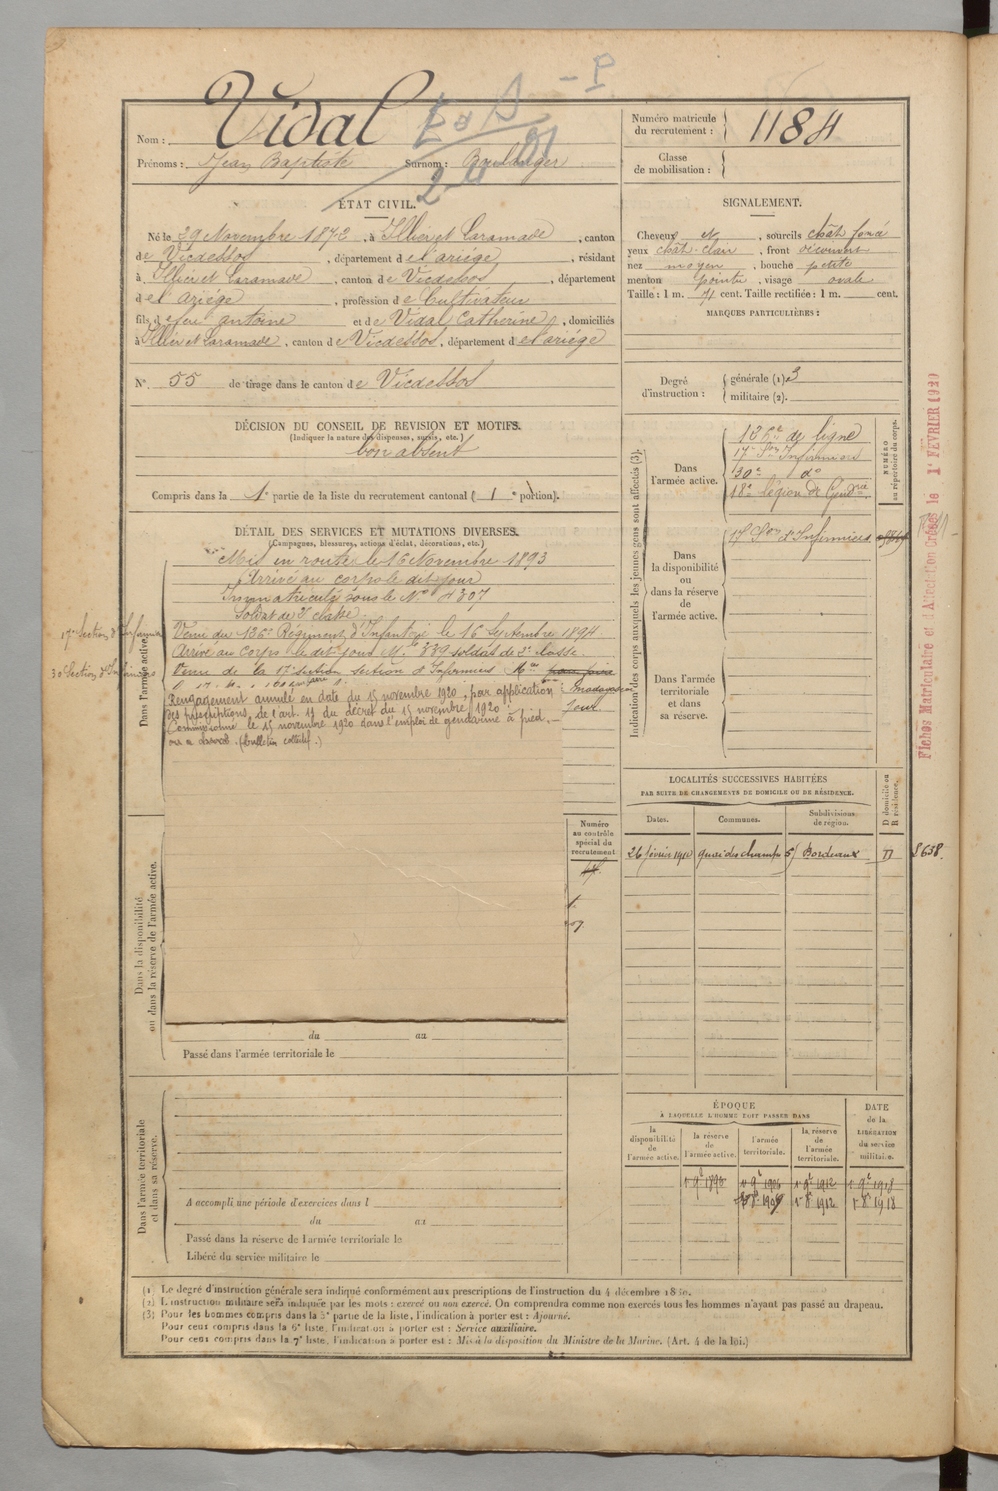 Vidal
E o S - P
Nom :
Numéro matricule du recrutement : 1184
Prénoms : Jean Baptiste Surnom : Boulanger
Classe de mobilisation :
ÉTAT CIVIL.
Né le 29 Novembre 1872, à Illier et Laramade, canton
de Vicdessos, département de l'ariége, résidant
à Illier et Laramade, canton de Vicdessos, département
de l'ariége, profession de Cultivateur
fils de feu antoine et de Vidal Catherine, domiciliés
à Illier et Laramade, canton de Vicdessos, département de l'ariége
N°. 55 de tirage dans le canton de Vicdessos
SIGNALEMENT.
Cheveux et, sourcils chât foncé
yeux chât-clair, front découvert
nez moyen, bouche petite
menton pointu, visage ovale
Taille : 1 m. 71 cent. Taille rectifiée : 1 m. cent.
MARQUES PARTICULIÈRES :
Degré d'instruction : générale (1) 3
militaire (2).
DÉCISION DU CONSEIL DE REVISION ET MOTIFS.
(Indiquer la nature des dispenses, sursis, etc.)
bon absent
Compris dans la 1e partie de la liste du recrutement cantonal ( 1e portion).
DÉTAIL DES SERVICES ET MUTATIONS DIVERSES.
(Campagnes, blessures, actions d'éclat, décorations, etc.)
Dans l'armée active.
Mis en route le 16 Novembre 1893
Arrivé au corps le dit jour
Immatriculé sous le N°
Soldat de 2e classe.
17e Section d'Infirmiers
Venu du 126e Régiment d'Infanterie le 16 Septembre 1894
Arrivé au corps le dit jour Mle 889 soldat de 2e classe.
30e Section d'Infirmiers
Venu de la 17e section section d'Infirmiers
Madagascar
jour
Rengagement annulé en date du 15 novembre 1920, par application
des prescriptions de l'art. 11 du décret du 15 novembre 1920.
Commissionné le 15 novembre 1920 dans l'emploi de gendarme à pied.
(bulletin collectif.)
Numéro au contrôle spécial du recrutement
Dans la disponibilité ou dans la réserve de l'armée active.
du au
Passé dans l'armée territoriale le
Dans l'armée territoriale et dans sa réserve.
A accompli une période d'exercices dans l
du au
Passé dans la réserve de l'armée territoriale le
Libéré du service militaire le
Indication des corps auxquels les jeunes gens sont affectés (3).
NUMÉRO au répertoire du corps.
Dans l'armée active.
126e de ligne
17e Son Infirmiers
30e do
18e légion de Gendrie
Dans la disponibilité ou dans la réserve de l'armée active.
17e Son d'Infirmiers
Dans l'armée territoriale et dans sa réserve.
Fiches Matriculaire et d'Affectation Créées le 1er FÉVRIER 1921
LOCALITÉS SUCCESSIVES HABITÉES
PAR SUITE DE CHANGEMENTS DE DOMICILE OU DE RÉSIDENCE.
Dates. Communes. Subdivisions de région. D domicile ou R résidence.
26 février 1911 quai des champs 51 Bordeaux D 8638.
ÉPOQUE
À LAQUELLE L'HOMME DOIT PASSER DANS
DATE de la LIBÉRATION du service militaire.
la disponibilité de l'armée active. la réserve de l'armée active. l'armée territoriale. la réserve de l'armée territoriale.
1 9e 1896 1 9e 1906 1 9e 1912 1 9e 1918
1 8e 1909 1 8e 1912 1 8e 1918
(1) Le degré d'instruction générale sera indiqué conformément aux prescriptions de l'instruction du 4 décembre 1889.
(2) L'instruction militaire sera indiquée par les mots : exercé ou non exercé. On comprendra comme non exercés tous les hommes n'ayant pas passé au drapeau.
(3) Pour les hommes compris dans la 5e partie de la liste, l'indication à porter est : Ajourné.
Pour ceux compris dans la 6e liste, l'indication à porter est : Service auxiliaire.
Pour ceux compris dans la 7e liste, l'indication à porter est : Mis à la disposition du Ministre de la Marine. (Art. 4 de la loi.)